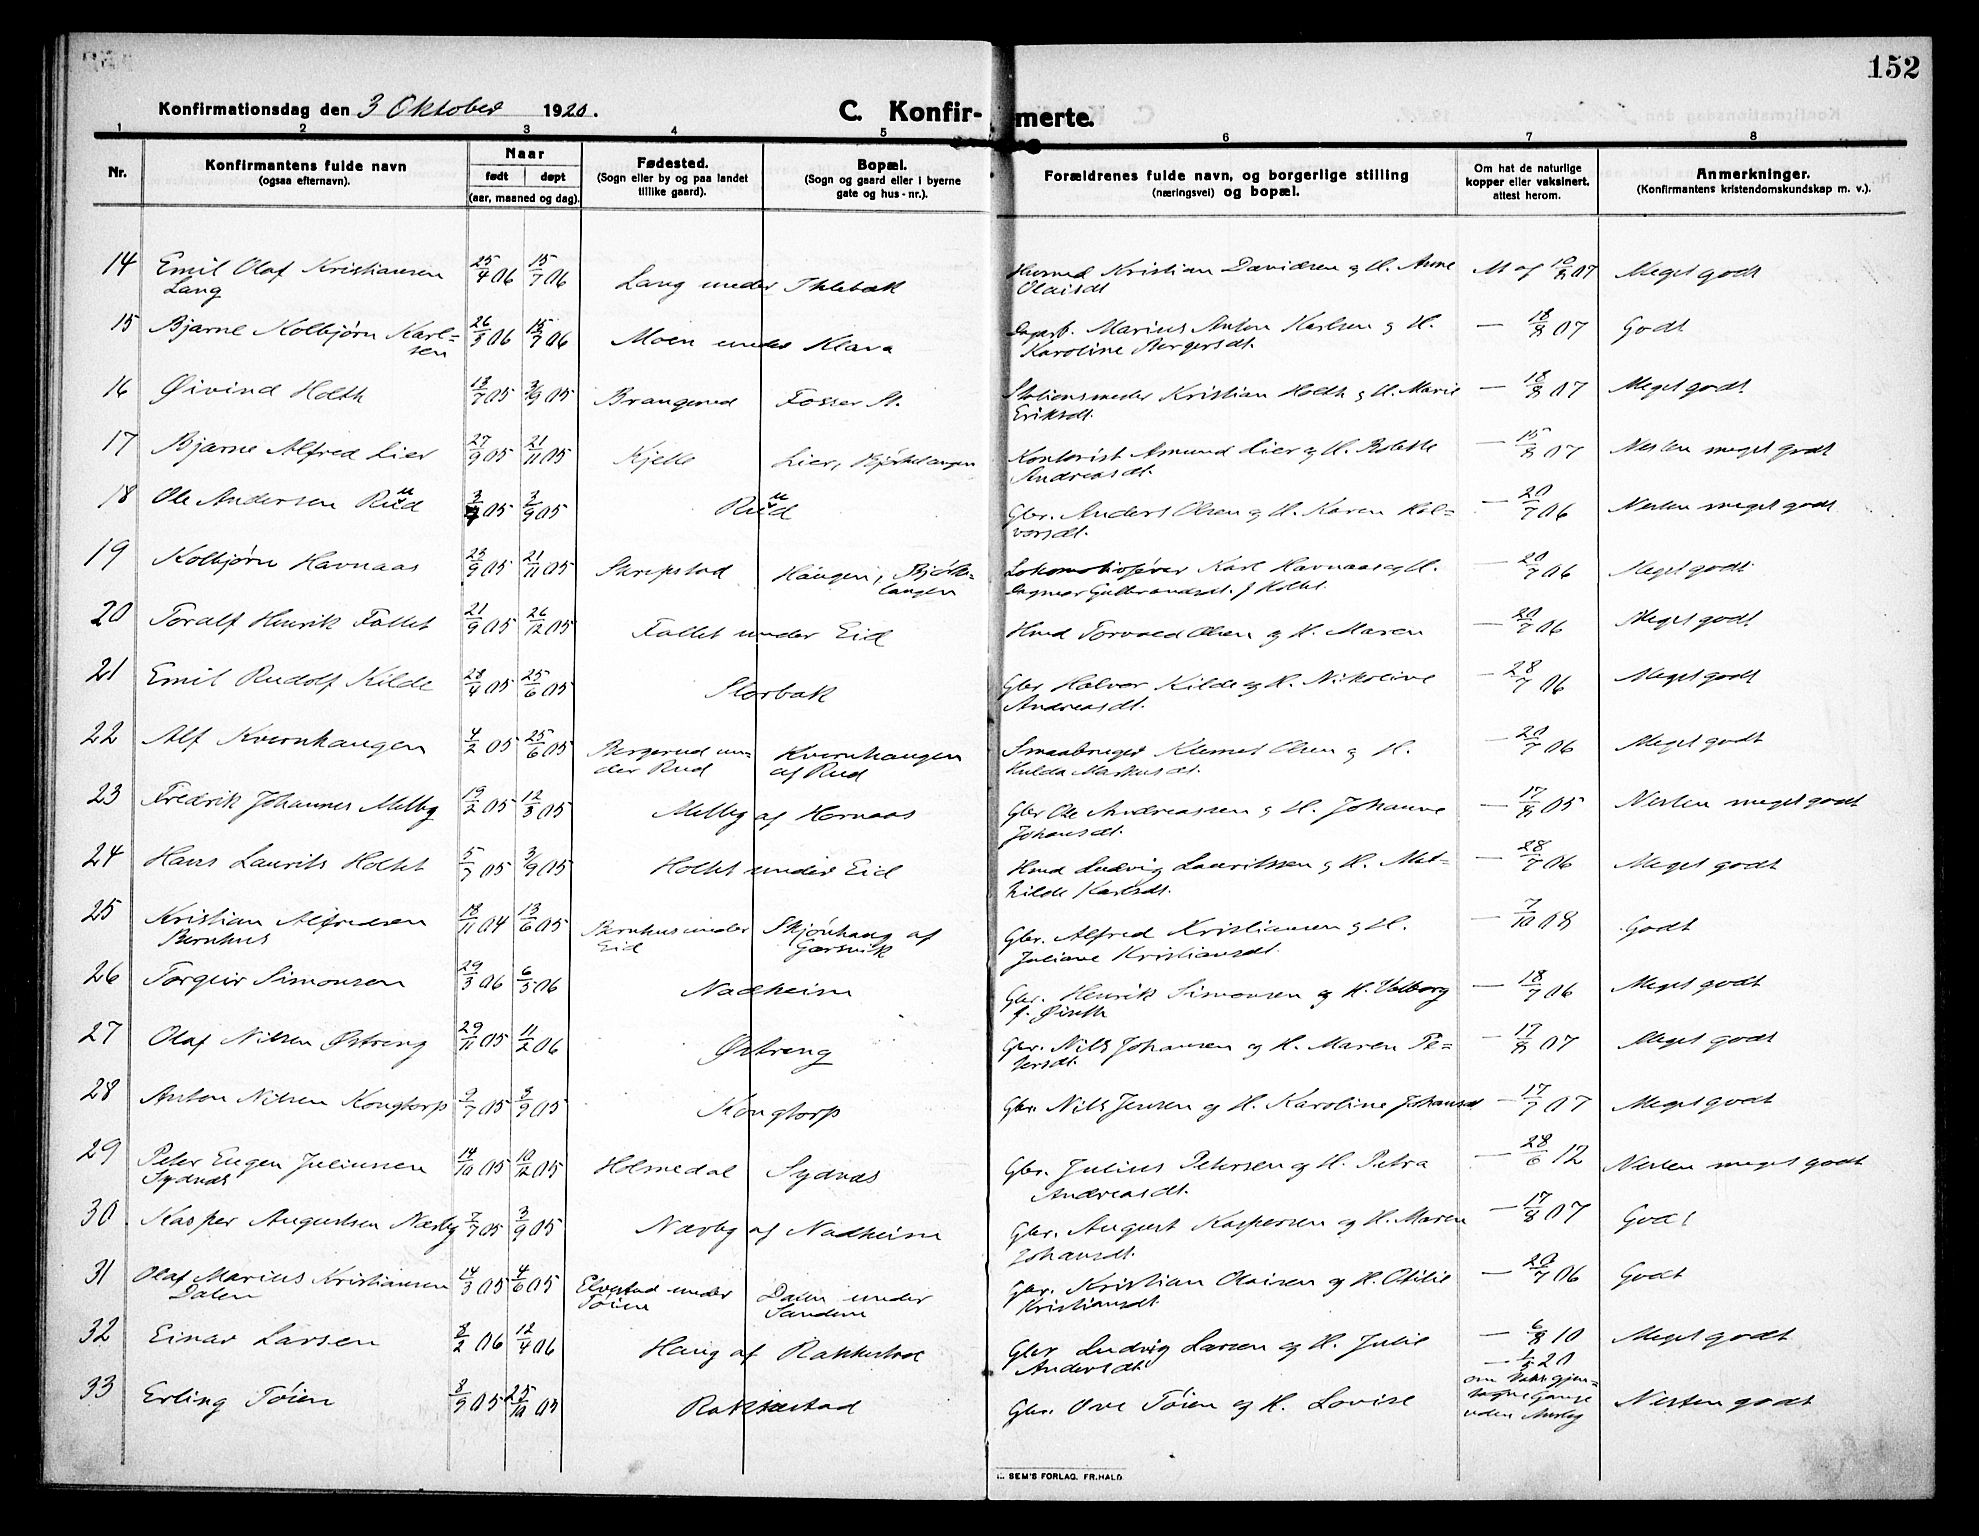 152
Konfirmationsdag den 3 Oktober 1920.
C. Konfirmerte.
1 2 3 4 5 6 7 8
Nr.
Konfirmantens fulde navn
(ogsaa efternavn).
Naar
født døpt
(aar, maaned og dag).
Fødested.
(Sogn eller by og paa landet
tillike gaard).
Bopæl.
(Sogn og gaard eller i byerne
gate og hus-nr.).
Forældrenes fulde navn, og borgerlige stilling
(næringsvei) og bopæl.
Om hat de naturlige
kopper eller vaksinert.
attest herom.
Anmerkninger.
(Konfirmantens kristendomskundskap m. v.).
14 Emil Olaf Kristiansen 25/4 06 15/7 06 Lang under Ihlebæk Husmd Kristian Davidsen og H. Anne At af 10/8 07 Meget godt
Lang Olaisdt
15 Bjarne Kolbjørn Karl= 26/5 06 15/7 06 Moen under Klava Dagarb. Marius Anton Karlsen og H. — 18/8 07 Godt
sen Karoline Aagersdt.
16 Øivind Holth 13/7 05 3/9 05 Brangerud Fosser St. Stationsmester Kristian Holth og H. Marie — 18/8 07 Meget godt
Eriksdt.
17 Bjarne Alfred Lier 27/9 05 21/11 05 Kjelle Lier, Bjørkelangen Kontorist Amund Lier og H. Bolette — 15/8 07 Nesten meget godt
Andreasdt.
18 Ole Andersen Rud 3/7 05 3/9 05 Rud Gbr. Anders Olsen og H. Karen Hal= — 20/7 06 Nesten meget godt
vorsdt.
19 Kolbjørn Havnaas 23/9 05 21/11 05 Skrepstad Haugen, Bjørke= Lokomotivfører Karl Havnaas og H. — 20/7 06 Meget godt
langen Dagmar Gulbrandsdt. f. Holtet
20 Toralf Henrik Fallet 21/9 05 26/12 05 Fallet under Eid Hmd Torvald Olsen og H. Maren — 20/7 06 Meget godt
21 Emil Rudolf Kilde 28/4 05 25/6 05 Storbak Gbr. Halvor Kilde og H. Nikoline — 28/7 06 Meget godt
Andreasdt.
22 Alf Kvernhaugen 4/2 05 25/6 05 Bergerud un= Kvernhaugen Smaabruger Klemet Olsen og H. — 20/7 06 Meget godt
der Rud af Rud Hulda Markusdt.
23 Fredrik Johannes Melby 19/2 05 12/3 05 Melby af Hornaas Gbr Ole Andreassen og H. Johanne — 17/8 05 Nesten meget godt
Johansdt.
24 Hans Laurits Holtet 5/7 05 3/9 05 Holtet under Eid Hmd Ludvig Lauritssen og H. Mat= — 28/7 06 Meget godt
hilde Karlsdt.
25 Kristian Alfredsen 18/11 04 13/6 05 Bernhus under Skjønhaug af Gbr. Alfred Kristiansen og H. — 7/10 08 Godt
Bernhus Eid Gjersvik Juliane Kristiansdt.
26 Torgeir Simonsen 29/3 06 6/5 06 Nadheim Gbr. Henrik Simonsen og H. Valborg — 18/7 06 Meget godt
27 Olaf Nilsen Østreng 29/11 05 11/2 06 Østreng Gbr. Nils Johansen og H. Maren Pe= — 17/8 07 Meget godt
tersdt.
28 Anton Nilsen Kongtorp 2/7 05 3/9 05 Kongtorp Gbr. Nils Jensen og H. Karoline Johansdt — 17/7 07 Meget godt
29 Peter Eugen Juliussen 14/10 05 10/12 05 Holmedal Sydnæs Gbr. Julius Petersen og H. Petra — 28/6 12 Nesten meget godt
Sydnæs Andreasdt.
30 Kasper Augustsen Nærby 7/7 05 3/9 05 Nærby af Nadheim Gbr. August Kaspersen og H. Maren — 17/8 07 Godt
Johansdt.
31 Olaf Marius Kristiansen 14/3 05 4/6 05 Elvestad under Dalen under Gbr. Kristian Olaisen og H. Otilie — 20/7 06 Godt
Dalen Töien Sandem Kristiansdt.
32 Einar Larsen 8/2 06 12/4 06 Haug af Rakkestad Gbr Ludvig Larsen og H. Julie — 6/8 10 Meget godt
Andersdt.
33 Erling Töien 8/9 05 25/10 05 Rakkestad Gbr. Ove Töien og H. Lovise — 1/5 20 Nesten godt
SEM'S FORLAG, FR.HALD